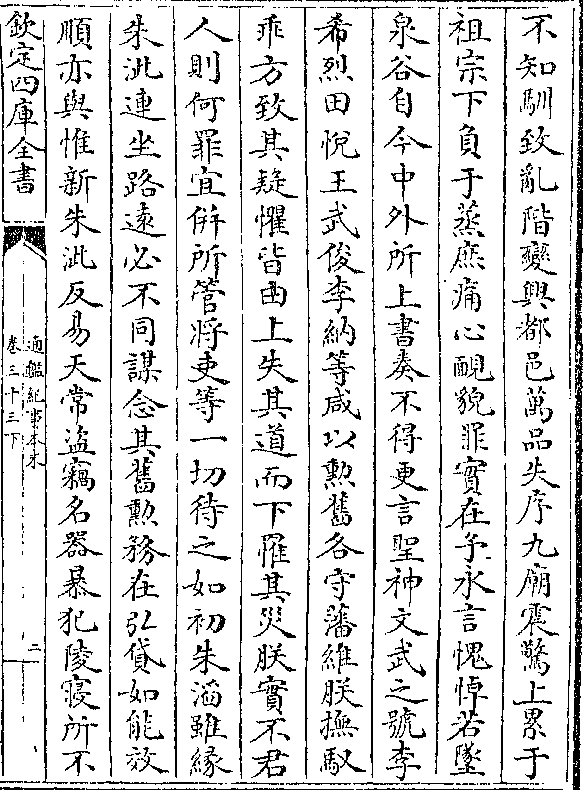 不知馴致亂階變興都邑萬品失序九廟震驚上累于
祖宗下負于蒸庶痛心靦貌罪實在予永言愧悼若墜
泉谷自今中外所上書奏不得更言聖神文武之號李
希烈田悅王武俊李納等咸以勲舊各守藩維朕撫馭
乖方致其疑懼皆由上失其道而下罹其災朕實不君
人則何罪宜併所管將吏等一切待之如初朱滔雖緣
朱泚連坐路遠必不同謀念其舊勲務在弘貸如能效
順亦與惟新朱泚反易天常盜竊名器暴犯陵寢所不
欽定四庫全書
通鑑紀事本末
卷三十三下
二